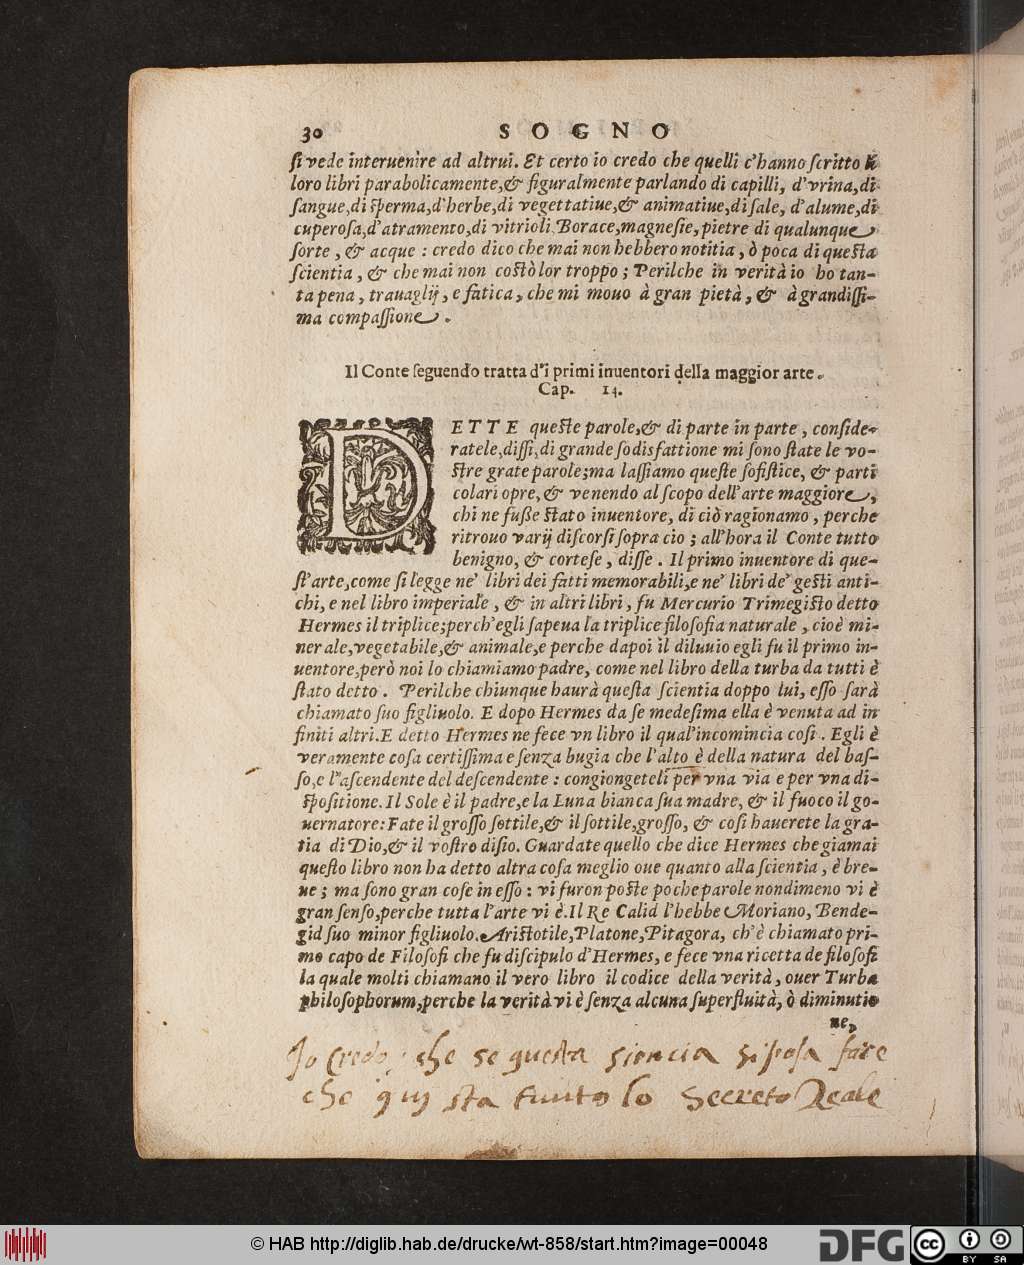 30 SOGNO
si vede interuenire ad altrui. Et certo io credo che quelli c'hanno scritto li
loro libri parabolicamente,& figuralmente parlando di capilli, d'vrina,di
sangue,di sperma,d'herbe,di vegettatiue,& animatiue,di sale, d'alume,di
cuperosa,d'atramento,di vitrioli Borace,magnesie,pietre di qualunque
sorte, & acque : credo dico che mai non hebbero notitia, ò poca di questa
scientia, & che mai non costò lor troppo ; Perilche in verità io ho tan-
ta pena, trauaglij, e fatica, che mi mouo à gran pietà, & à grandissi-
ma compassione .
Il Conte seguendo tratta d'i primi inuentori della maggior arte.
Cap. 14.
DETTE queste parole,& di parte in parte, conside-
ratele,dissi,di grande sodisfattione mi sono state le vo-
stre grate parole;ma lassiamo queste sofistice, & parti
colari opre,& venendo al scopo dell'arte maggiore,
chi ne fuße stato inuentore, di ciò ragionamo, perche
ritrouo varij discorsi sopra cio ; all'hora il Conte tutto
benigno, & cortese, disse. Il primo inuentore di que-
st'arte,come si legge ne' libri dei fatti memorabili,e ne' libri de' gesti anti-
chi, e nel libro imperiale, & in altri libri, fu Mercurio Trimegisto detto
Hermes il triplice;perch'egli sapeua la triplice filosofia naturale, cioè mi-
nerale,vegetabile,& animale,e perche dapoi il diluuio egli fu il primo in-
uentore,però noi lo chiamiamo padre, come nel libro della turba da tutti è
stato detto. Perilche chiunque haurà questa scientia doppo lui, esso sarà
chiamato suo figliuolo. E dopo Hermes da se medesima ella è venuta ad in
finiti altri.E detto Hermes ne fece vn libro il qual'incomincia cosi. Egli è
veramente cosa certissima e senza bugia che l'alto è della natura del bas-
so,e l'ascendente del descendente : congiongeteli per vna via e per vna di-
spositione. Il Sole è il padre,e la Luna bianca sua madre, & il fuoco il go-
uernatore:Fate il grosso sottile,& il sottile,grosso, & cosi hauerete la gra-
tia di Dio,& il vostro disio. Guardate quello che dice Hermes che giamai
questo libro non ha detto altra cosa meglio oue quanto alla scientia, è bre-
ue ; ma sono gran cose in esso : vi furon poste poche parole nondimeno vi è
gran senso,perche tutta l'arte vi è.Il Re Calid l'hebbe Moriano, Bende-
gid suo minor figliuolo.Aristotile,Platone,Pitagora, ch'è chiamato pri-
mo capo de Filosofi che fu discipulo d'Hermes, e fece vna ricetta de filosofi
la quale molti chiamano il vero libro il codice della verità, ouer Turba
philosophorum,perche la verità vi è senza alcuna superfluità, ò diminutio
ne,
Jo Credo che se questa siencia si posa fare
che quista tuuto lo Secreto Reale
© HAB http://diglib.hab.de/drucke/wt-858/start.htm?image=00048
DFG cc BY SA